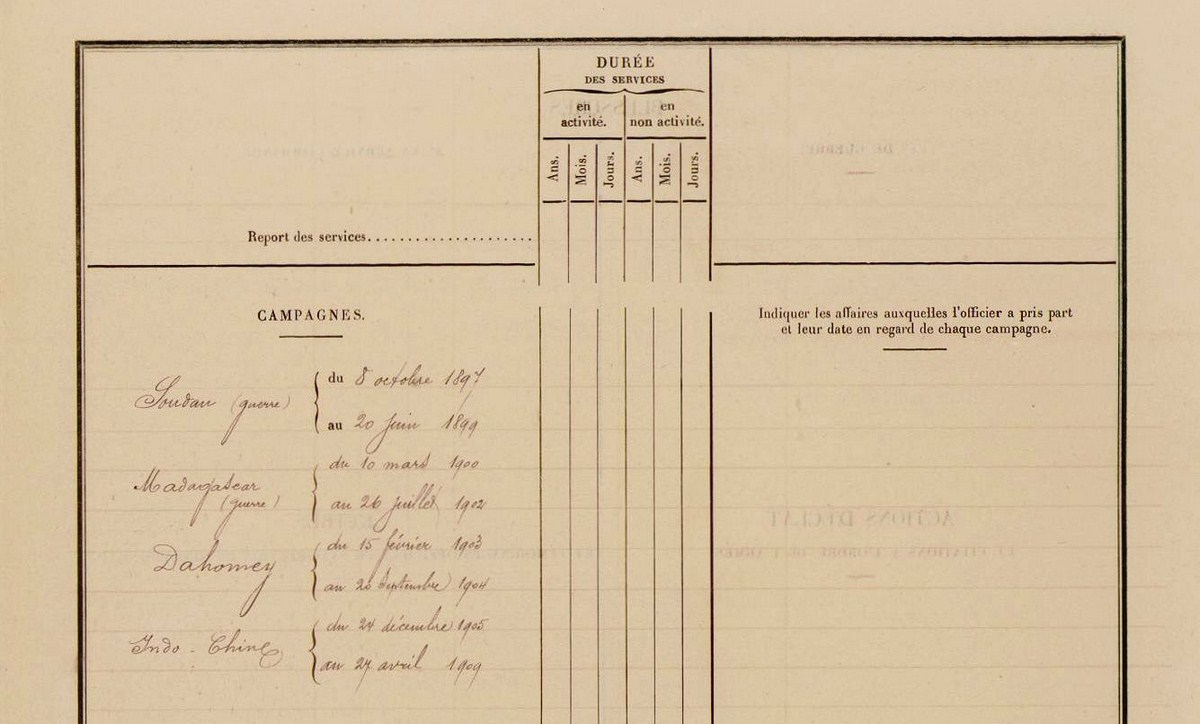 DURÉE
DES SERVICES
en activité.
en non activité.
Ans.
Mois.
Jours.
Ans.
Mois.
Jours.
Report des services.....................
CAMPAGNES.
Indiquer les affaires auxquelles l'officier a pris part
et leur date en regard de chaque campagne.
Soudan (guerre)
du 8 octobre 1897
au 20 juin 1899
Madagascar
(guerre)
du 10 mars 1900
au 26 juillet 1902
Dahomey
du 15 février 1903
au 20 Septembre 1904
Indo-Chine
du 24 décembre 1905
au 27 avril 1909